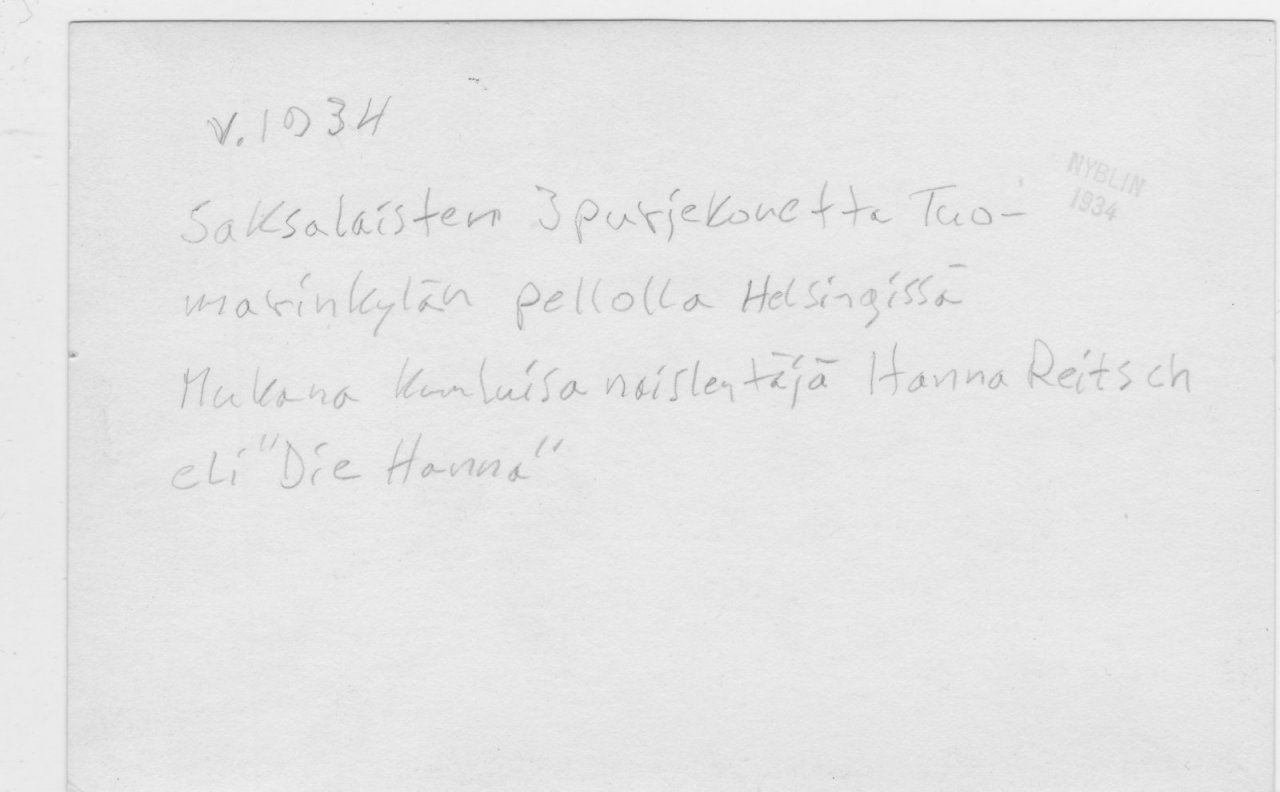 v. 1934
Saksalaisten 3 purjekonetta Tuo-
marinkylän pellolla Helsingissä
Mukana kuuluisa naislentäjä Hanna Reitsch
eli "Die Hanna"
NYBLIN
1934